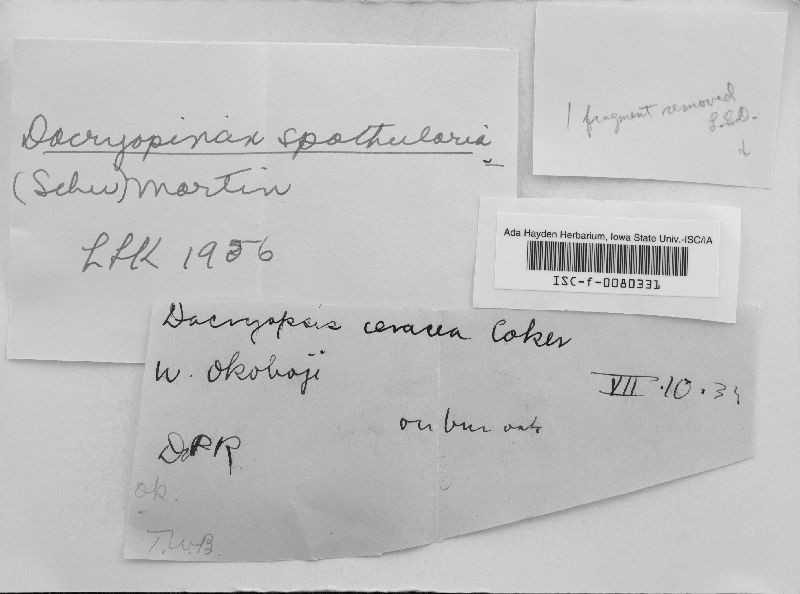 Dacryopinax spathularia
(Schw) Martin
LLK 1956
1 fragment removed
Ada Hayden Herbarium, Iowa State Univ.-ISC/IA
ISC-f-0080331
Dacryopsis ceracea Coker
W. Okoboji
VII·10·34
on bur oak
DPR
ok.
T.W.B.